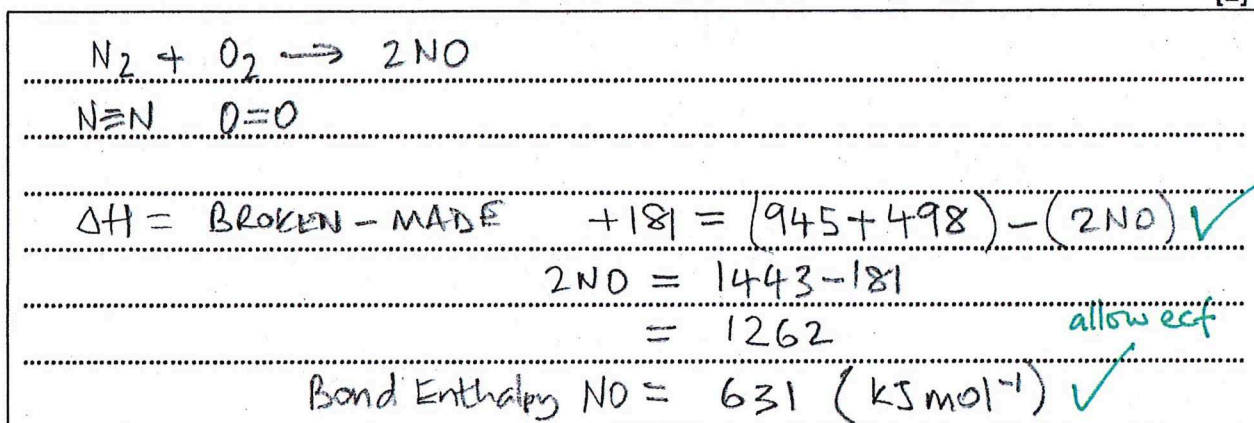 N₂ + O₂ → 2NO
N≡N O=O
ΔH = BROKEN - MADE +181 = (945+498) - (2NO) ✓
2NO = 1443-181
= 1262
allow ecf
Bond Enthalpy NO = 631 (kJ mol⁻¹) ✓